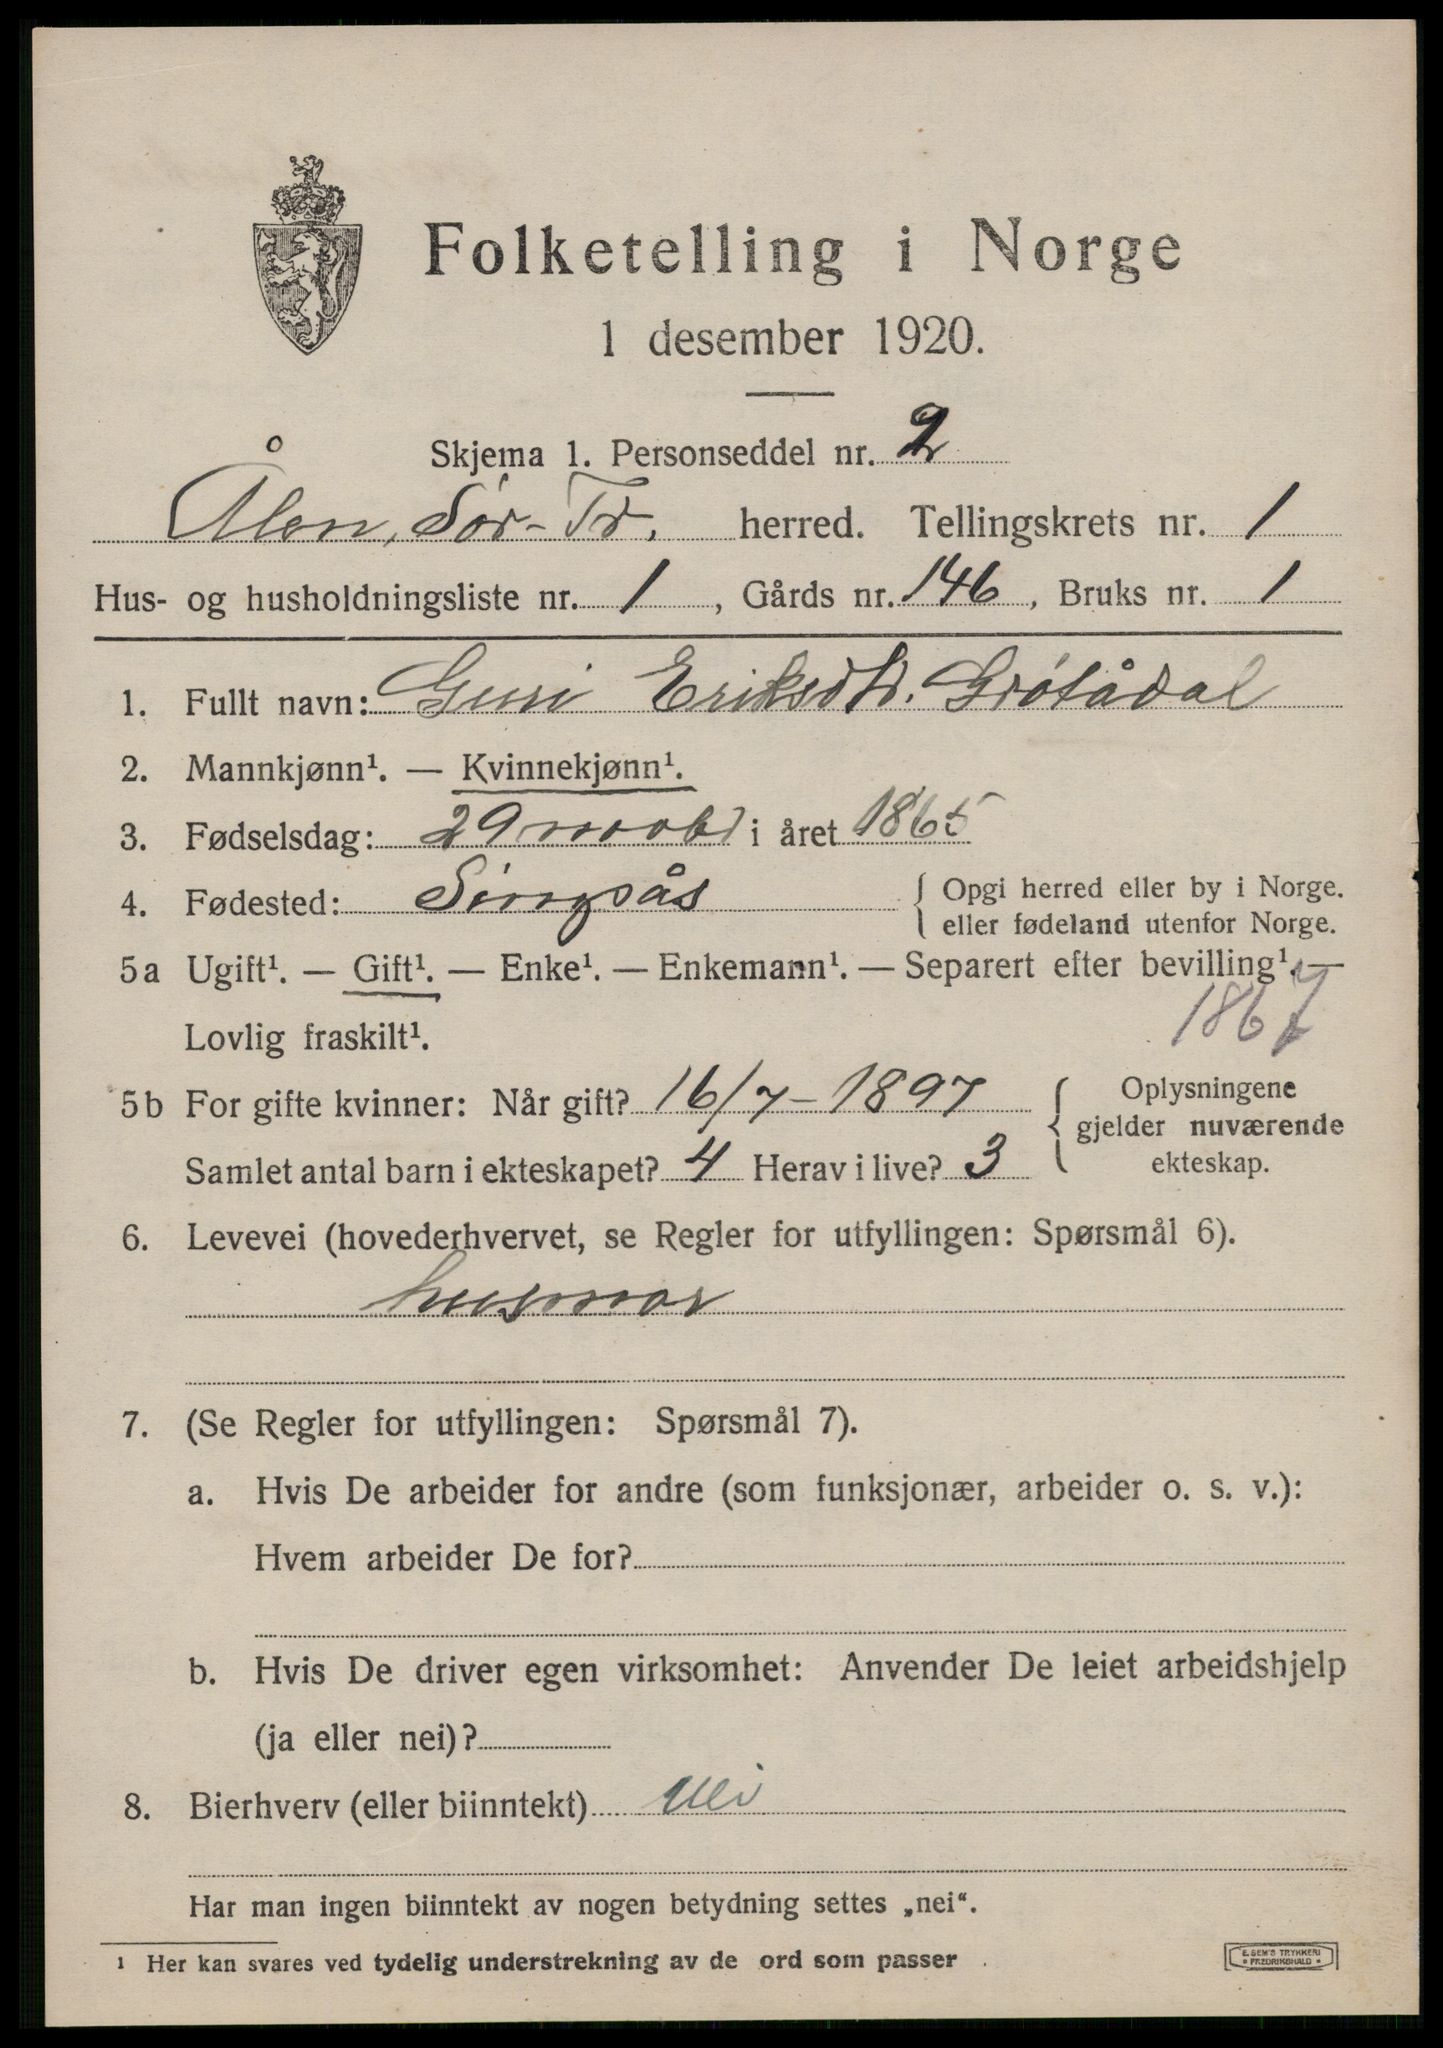 Folketelling i Norge
1 desember 1920.
Skjema 1. Personseddel nr. 2
Ålen, Sør-Tr. herred. Tellingskrets nr. 1
Hus- og husholdningsliste nr. 1, Gårds nr. 146, Bruks nr. 1
1. Fullt navn: Guri Eriksdtr. Grötådal
2. Mannkjønn¹. — Kvinnekjønn¹.
3. Fødselsdag: 29 novbr i året 1865
4. Fødested: Singsås { Opgi herred eller by i Norge.
eller fødeland utenfor Norge.
5a Ugift¹. — Gift¹. — Enke¹. — Enkemann¹. — Separert efter bevilling¹. —
Lovlig fraskilt¹. 1867
5b For gifte kvinner: Når gift? 16/7-1897 { Oplysningene
gjelder nuværende
Samlet antal barn i ekteskapet? 4 Herav i live? 3 ekteskap.
6. Levevei (hovederhvervet, se Regler for utfyllingen: Spørsmål 6).
husmor
7. (Se Regler for utfyllingen: Spørsmål 7).
a. Hvis De arbeider for andre (som funksjonær, arbeider o. s. v.):
Hvem arbeider De for?
b. Hvis De driver egen virksomhet: Anvender De leiet arbeidshjelp
(ja eller nei)?
8. Bierhverv (eller biinntekt) Nei
Har man ingen biinntekt av nogen betydning settes „nei“.
¹ Her kan svares ved tydelig understrekning av de ord som passer
E. SEM'S TRYKKERI
* FREDRIKSHALD *